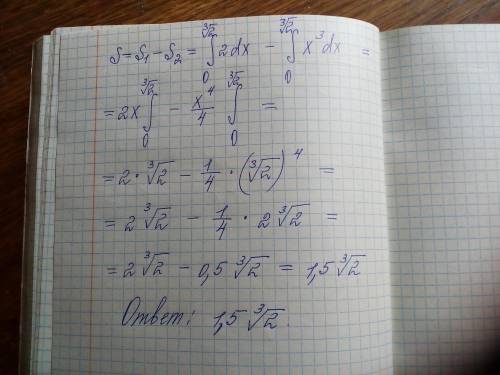 S = S₁ - S₂ = ∫₀^∛2 2dx - ∫₀^∛2 x³dx =
= 2x ∫₀^∛2 - x⁴/4 ∫₀^∛2 =
= 2 · ∛2 - 1/4 · (∛2)⁴ =
= 2∛2 - 1/4 · 2∛2 =
= 2∛2 - 0,5∛2 = 1,5∛2
Ответ: 1,5∛2.